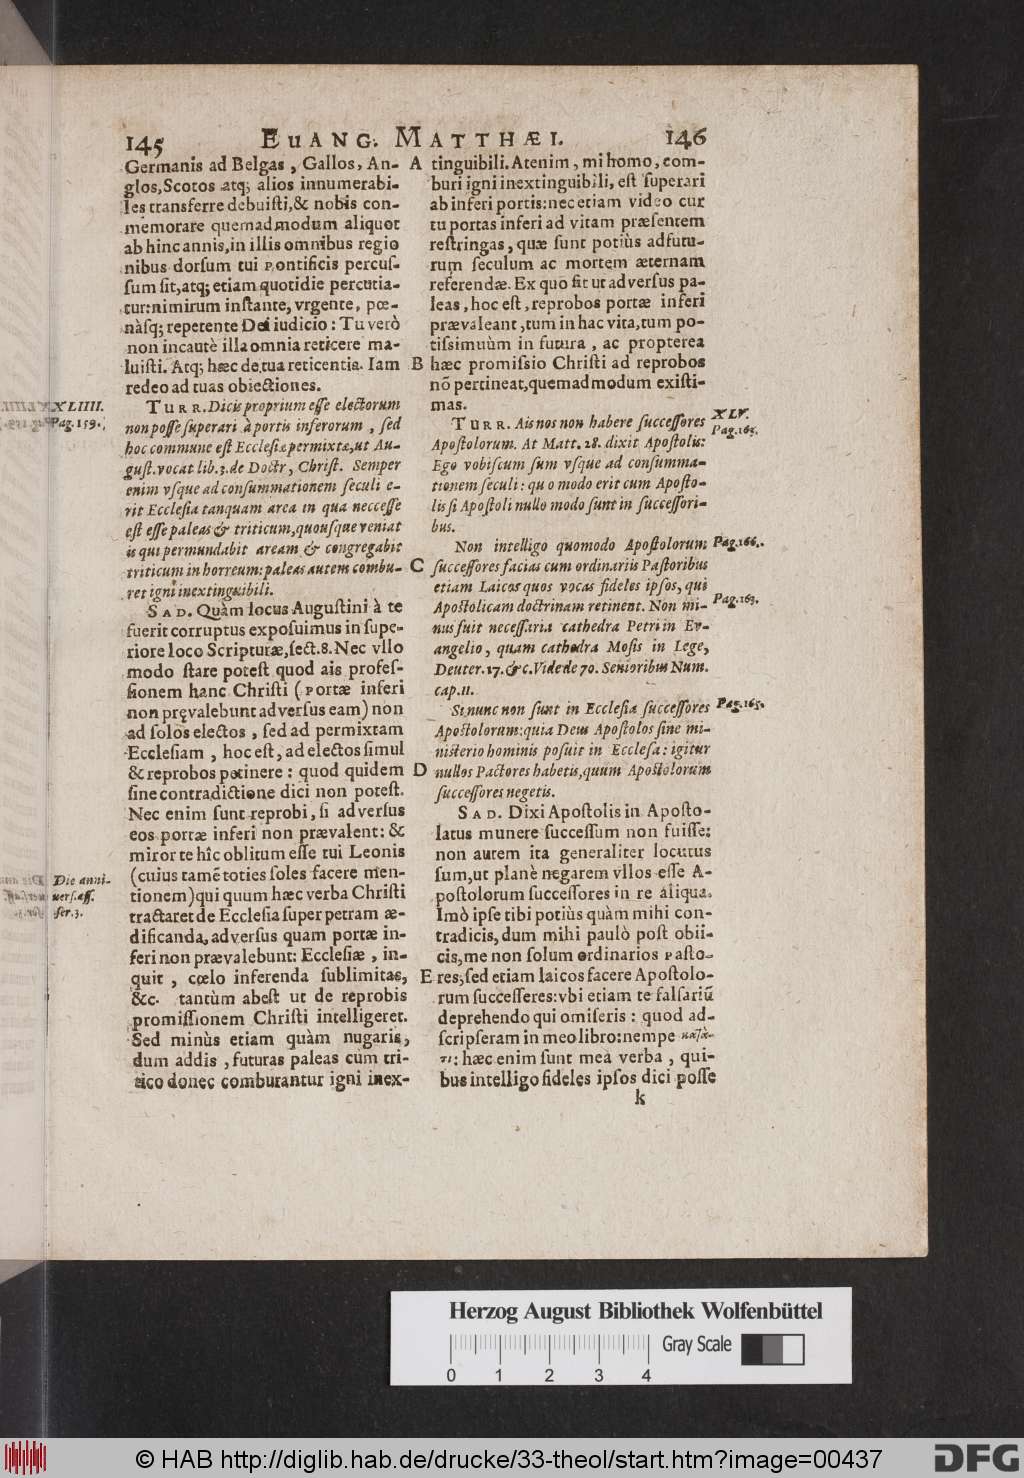 145 EUANG. MATTHÆI. 146
Germanis ad Belgas, Gallos, An-
glos, Scotos atq; alios innumerabi-
les transferre debuisti, & nobis con-
memorare quemadmodum aliquot
ab hinc annis, in illis omnibus regio
nibus dorsum tui Pontificis percus-
sum sit, atq; etiam quotidie percutia-
tur: nimirum instante, vrgente, pœ-
nàsq; repetente Dei iudicio: Tu verò
non incautè illa omnia reticere ma-
luisti. Atq; hæc de tua reticentia. Iam
redeo ad tuas obiectiones.
XLIIII.
Pag. 159.
TURR. Dicis proprium esse electorum
non posse superari à portis inferorum, sed
hoc commune est Ecclesiæ permixtæ, ut Au-
gust. vocat lib. 3. de Doctr, Christ. Semper
enim vsque ad consummationem seculi e-
rit Ecclesia tanquam area in qua neccesse
est esse paleas & triticum, quousque veniat
is qui permundabit aream & congregabit
triticum in horreum: paleas autem combu-
ret igni inextinguibili.
SAD. Quàm locus Augustini à te
fuerit corruptus exposuimus in supe-
riore loco Scripturæ, sect. 8. Nec vllo
modo stare potest quod ais profes-
sionem hanc Christi (Portæ inferi
non pręvalebunt adversus eam) non
ad solos electos, sed ad permixtam
Ecclesiam, hoc est, ad electos simul
& reprobos pertinere: quod quidem
sine contradictione dici non potest.
Nec enim sunt reprobi, si adversus
eos portæ inferi non prævalent: &
miror te hîc oblitum esse tui Leonis
Die anni-
vers. ass.
ser. 3.
(cuius tamẽ toties soles facere men-
tionem) qui quum hæc verba Christi
tractaret de Ecclesia super petram æ-
dificanda, adversus quam portæ in-
feri non prævalebunt: Ecclesiæ, in-
quit, cœlo inferenda sublimitas,
&c. tantùm abest ut de reprobis
promissionem Christi intelligeret.
Sed minùs etiam quàm nugaris,
dum addis, futuras paleas cùm tri-
tico donec comburantur igni inex-
A tinguibili. Atenim, mi homo, com-
buri igni inextinguibili, est superari
ab inferi portis: nec etiam video cur
tu portas inferi ad vitam præsentem
restringas, quæ sunt potiùs ad futu-
rum seculum ac mortem æternam
referendæ. Ex quo fit ut adversus pa-
leas, hoc est, reprobos portæ inferi
prævaleant, tum in hac vita, tum po-
tissimuùm in futura, ac propterea
B hæc promissio Christi ad reprobos
nõ pertineat, quemadmodum existi-
mas.
XLV.
Pag. 165.
TURR. Ais nos non habere successores
Apostolorum. At Matt. 28. dixit Apostolis:
Ego vobiscum sum vsque ad consumma-
tionem seculi: quomodo erit cum Aposto-
lis si Apostoli nullo modo sunt in successori-
bus.
Pag. 166.
Non intelligo quomodo Apostolorum
C successores facias cum ordinariis Pastoribus
etiam Laicos quos vocas fideles ipsos, qui
Pag. 163.
Apostolicam doctrinam retinent. Non mi-
nus fuit necessaria cathedra Petri in Ev-
angelio, quam cathedra Mosis in Lege,
Deuter. 17. &c. Vide de 70. Senioribus Num.
cap. 11.
Pag. 165.
Si nunc non sunt in Ecclesia successores
Apostolorum: quia Deus Apostolos sine mi-
nisterio hominis posuit in Ecclesa: igitur
D nullos Pactores habetis, quum Apostolorum
successores negetis.
SAD. Dixi Apostolis in Aposto-
latus munere successum non fuisse:
non autem ita generaliter locutus
sum, ut planè negarem vllos esse A-
postolorum successores in re aliqua.
Imò ipse tibi potiùs quàm mihi con-
tradicis, dum mihi paulò post obii-
cis, me non solum ordinarios Pasto-
E res; sed etiam laicos facere Apostolo-
rum successeres: vbi etiam te falsariũ
deprehendo qui omiseris: quod ad-
scripseram in meo libro: nempe
: hæc enim sunt mea verba, qui-
bus intelligo fideles ipsos dici posse
k
Herzog August Bibliothek Wolfenbüttel
Gray Scale
0 1 2 3 4
© HAB http://diglib.hab.de/drucke/33-theol/start.htm?image=00437
DFG